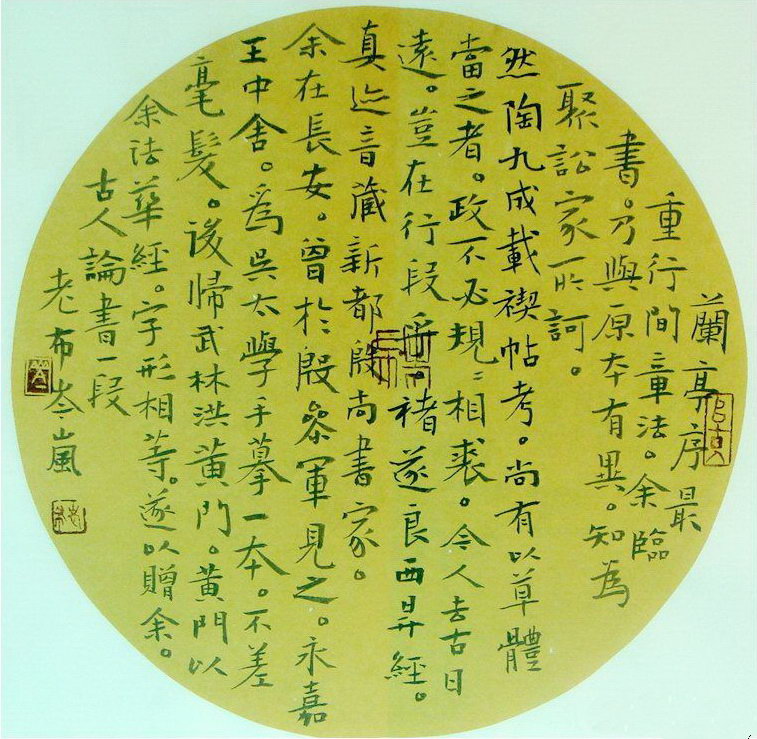 蘭亭序最
重行間章法。余臨
書。乃與原本有異。知為
聚訟家所訶。
然陶九成載禊帖考。尚有以草體
當之者。政不必規〻相裘。今人去古日
遠。豈在行段乎。褚遂良西昇經。
真迹音藏新都殷尚書家。
余在長安。曾於殷參軍見之。永嘉
王中舍。為吳太學手摹一本。不差
毫髮。後歸武林洪黃門。黃門以
余法華經。字形相等。遂以贈余。
古人論書一段
老布岑嵐